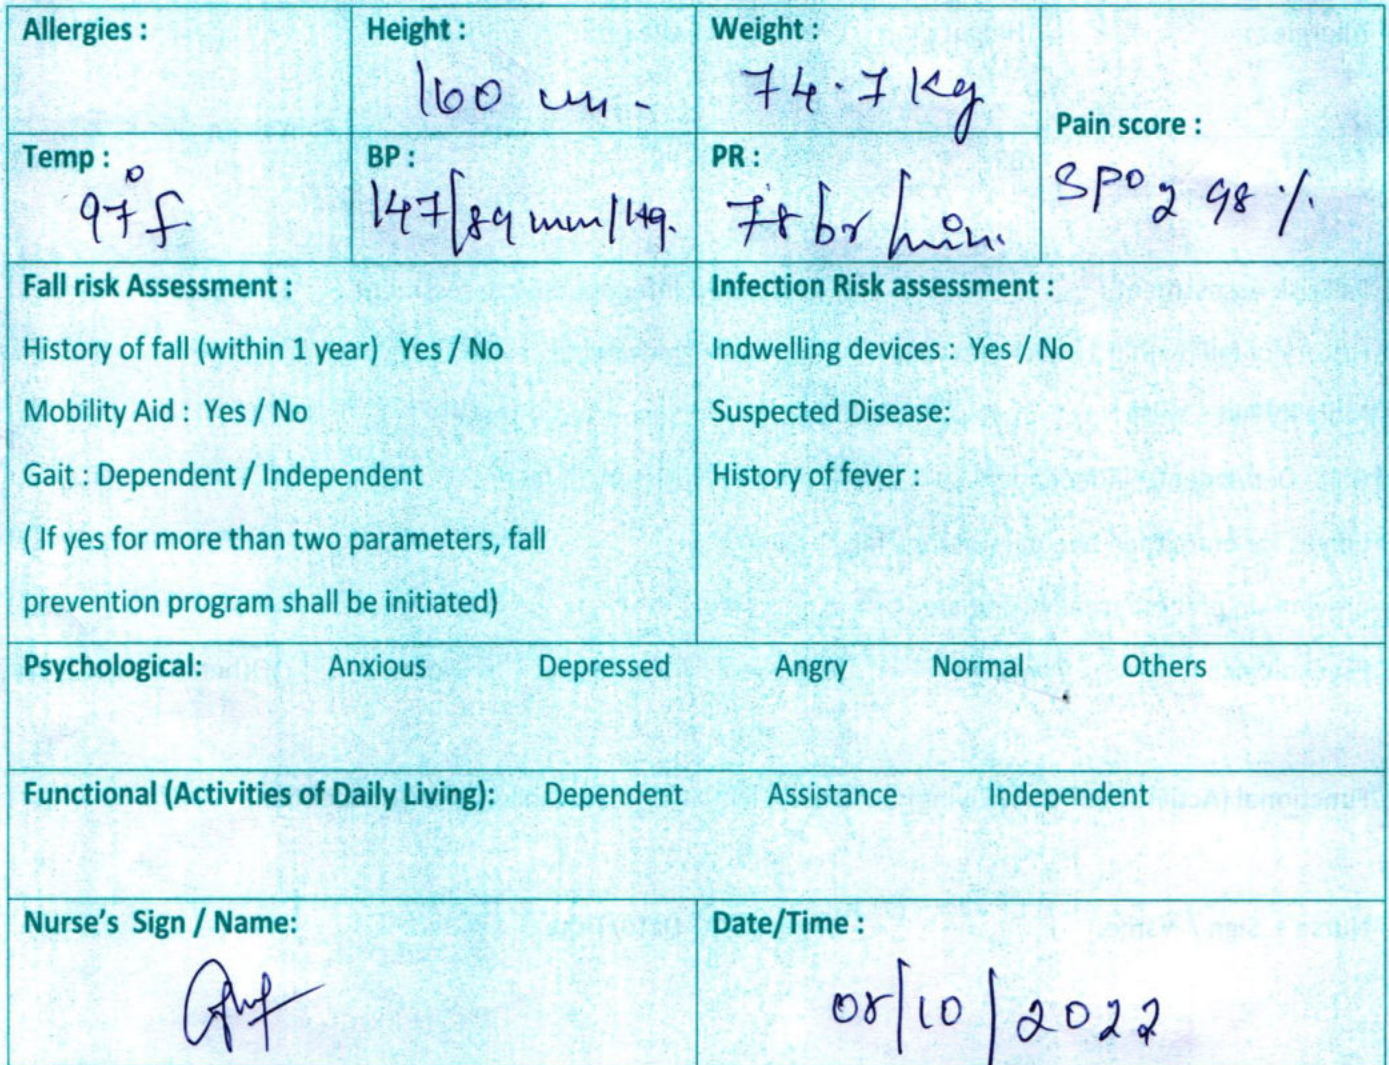 Allergies :
Height :
160 cm -
Weight :
74.7 Kg
Pain score :
SPO2 98 %
Temp :
97°f
BP :
147/89 mm/Hg.
PR :
78 br/min.
Fall risk Assessment :
History of fall (within 1 year) Yes / No
Mobility Aid : Yes / No
Gait : Dependent / Independent
( If yes for more than two parameters, fall
prevention program shall be initiated)
Infection Risk assessment :
Indwelling devices : Yes / No
Suspected Disease:
History of fever :
Psychological: Anxious Depressed Angry Normal Others
Functional (Activities of Daily Living): Dependent Assistance Independent
Nurse's Sign / Name:
Date/Time :
08/10/2022